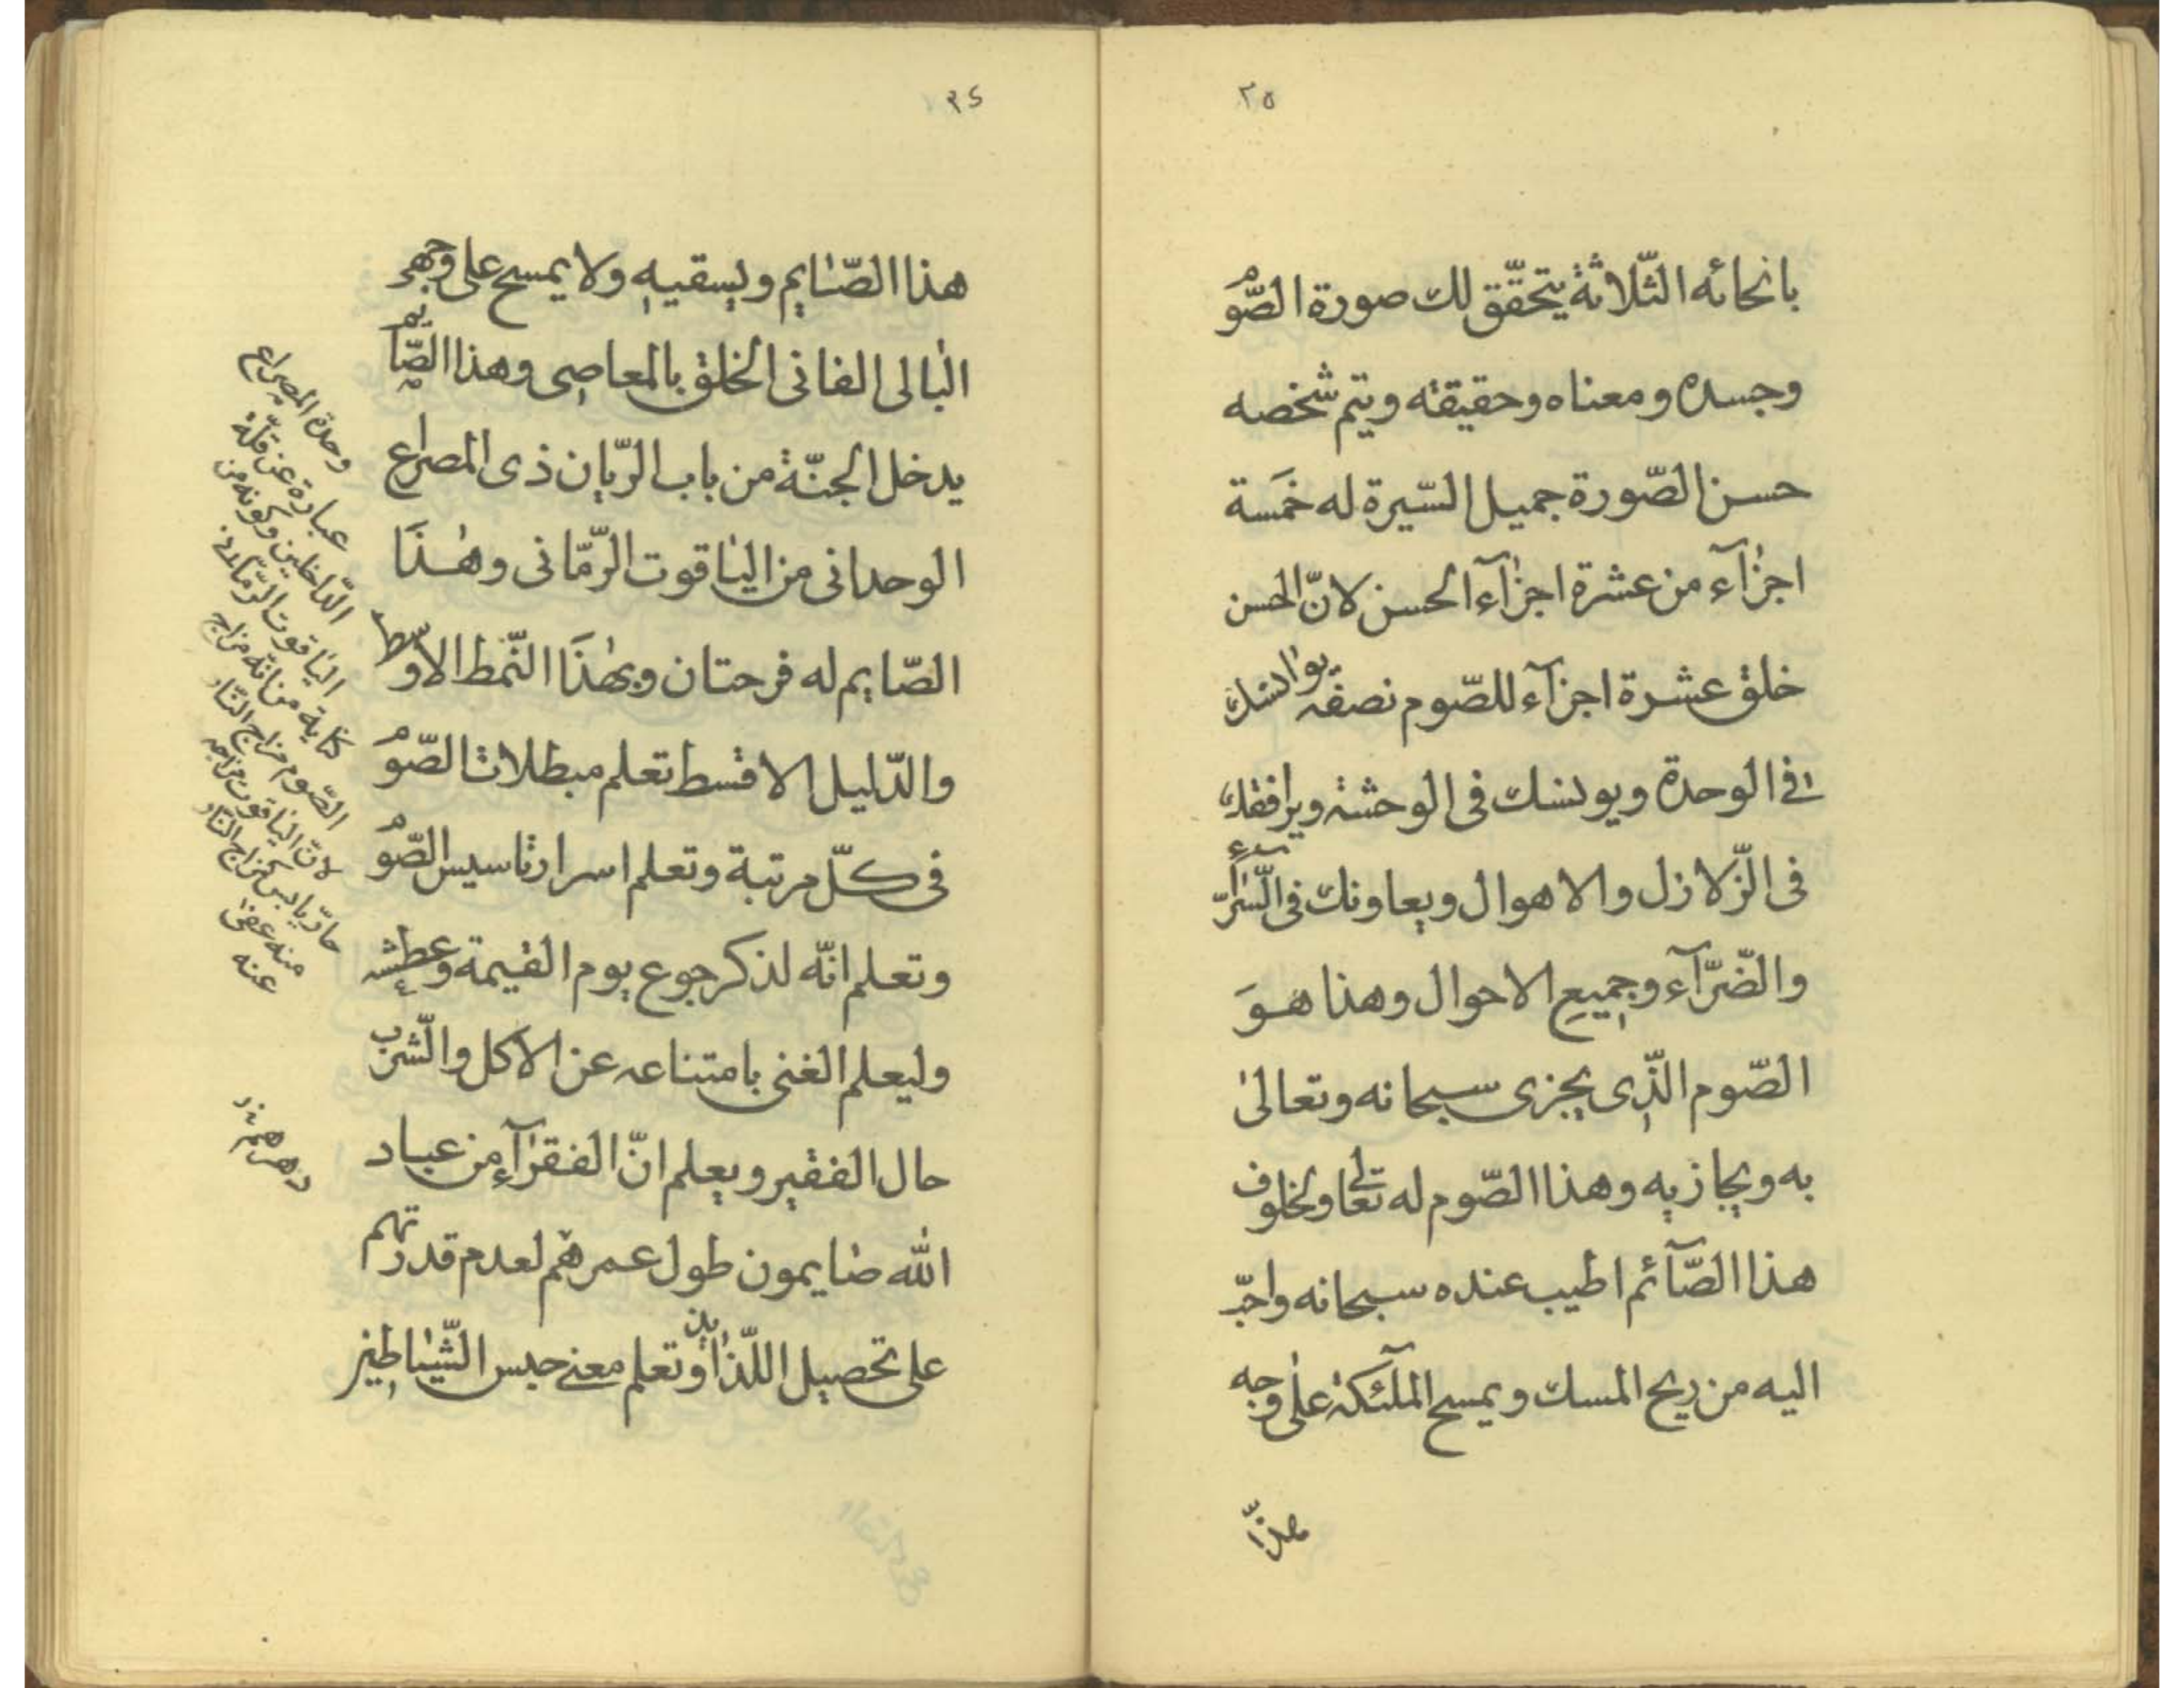 ٣٥
بانحائه الثّلاثة يتحقّق لك صورة الصّوم
وجسده ومعناه وحقيقته ويتم شخصه
حسن الصّورة جميل السّيرة له خمَسة
اجزآء من عشرة اجزآء الحسن لانّ الحسن
خلق عشرة اجزآء للصّوم نصفه يوانسك
في الوحدة ويونسك في الوحشة ويرافقك
في الزّلازل والاهوال ويعاونك في السّرّآء
والضّرّآء وجميع الاحوال وهذا هوَ
الصّوم الّذي يجزى سبحانه وتعالىٰ
به ويجازيه وهذا الصّوم له تعالى ولخلوف
هذا الصّآئم اطيب عنده سبحانه واحبّ
اليه من ريح المسك ويمسح الملٓئكة علىٰ وجه
هذا
٣٤
هذا الصّايم ويسقيه ولا يمسح على وجهه
البالى الفانى الخلق بالمعاصى وهذا الصّايم
يدخل الجنّة من باب الريّان ذى المصراع
الوحدانى من الياقوت الرّمّانى وهٰذَا
الصّايم له فرحتان وبهٰذَا النّمط الاوسط
والدّليل الاقسط تعلم مبطلات الصّوم
فى كلّ مرتبة وتعلم اسرار تاسيس الصّوم
وتعلم انّه لذكر جوع يوم القيمة وعطشه
وليعلم الغنى بامتناعه عن الاكل والشّرب
حال الفقير ويعلم انّ الفقرآء من عباد
الله صايمون طول عمرهم لعدم قدرتهم
على تحصيل اللّذايذ وتعلم معنى حبس الشّياطين
وحدة المصراع
عبارة عن قلّة
الدّاخلين وكونه من
الياقوت الرّمّانى
كناية من انّه مزاج
الصّوم مزاج النّار
لانّ الياقوت مزاجه
حارّ يابس كمزاج النّار
منه عفى
عنه